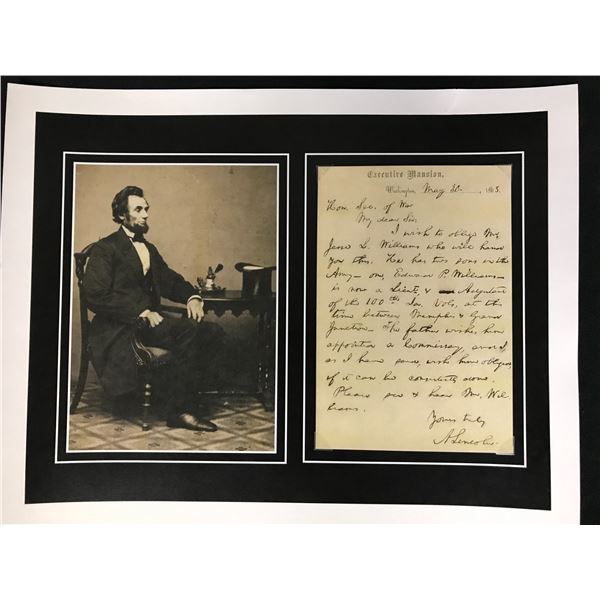 Executive Mansion,
Washington, May 30, 1863.
Hon. Sec. of War
My dear Sir:
I wish to oblige Mr.
Jesse L. Williams who will hand
you this. He has two sons in the
Army— one, Edward P. Williams—
is now a Lieut. & Adjutant
of the 100th Ind. Vols, at this
time between Memphis & Grand
Junction— The father wishes him
appointed a Commissary, and I,
as I have said, wish him obliged
if it can be consistently done.
Please see & hear Mr. Wil
liams.
Yours truly
A. Lincoln.